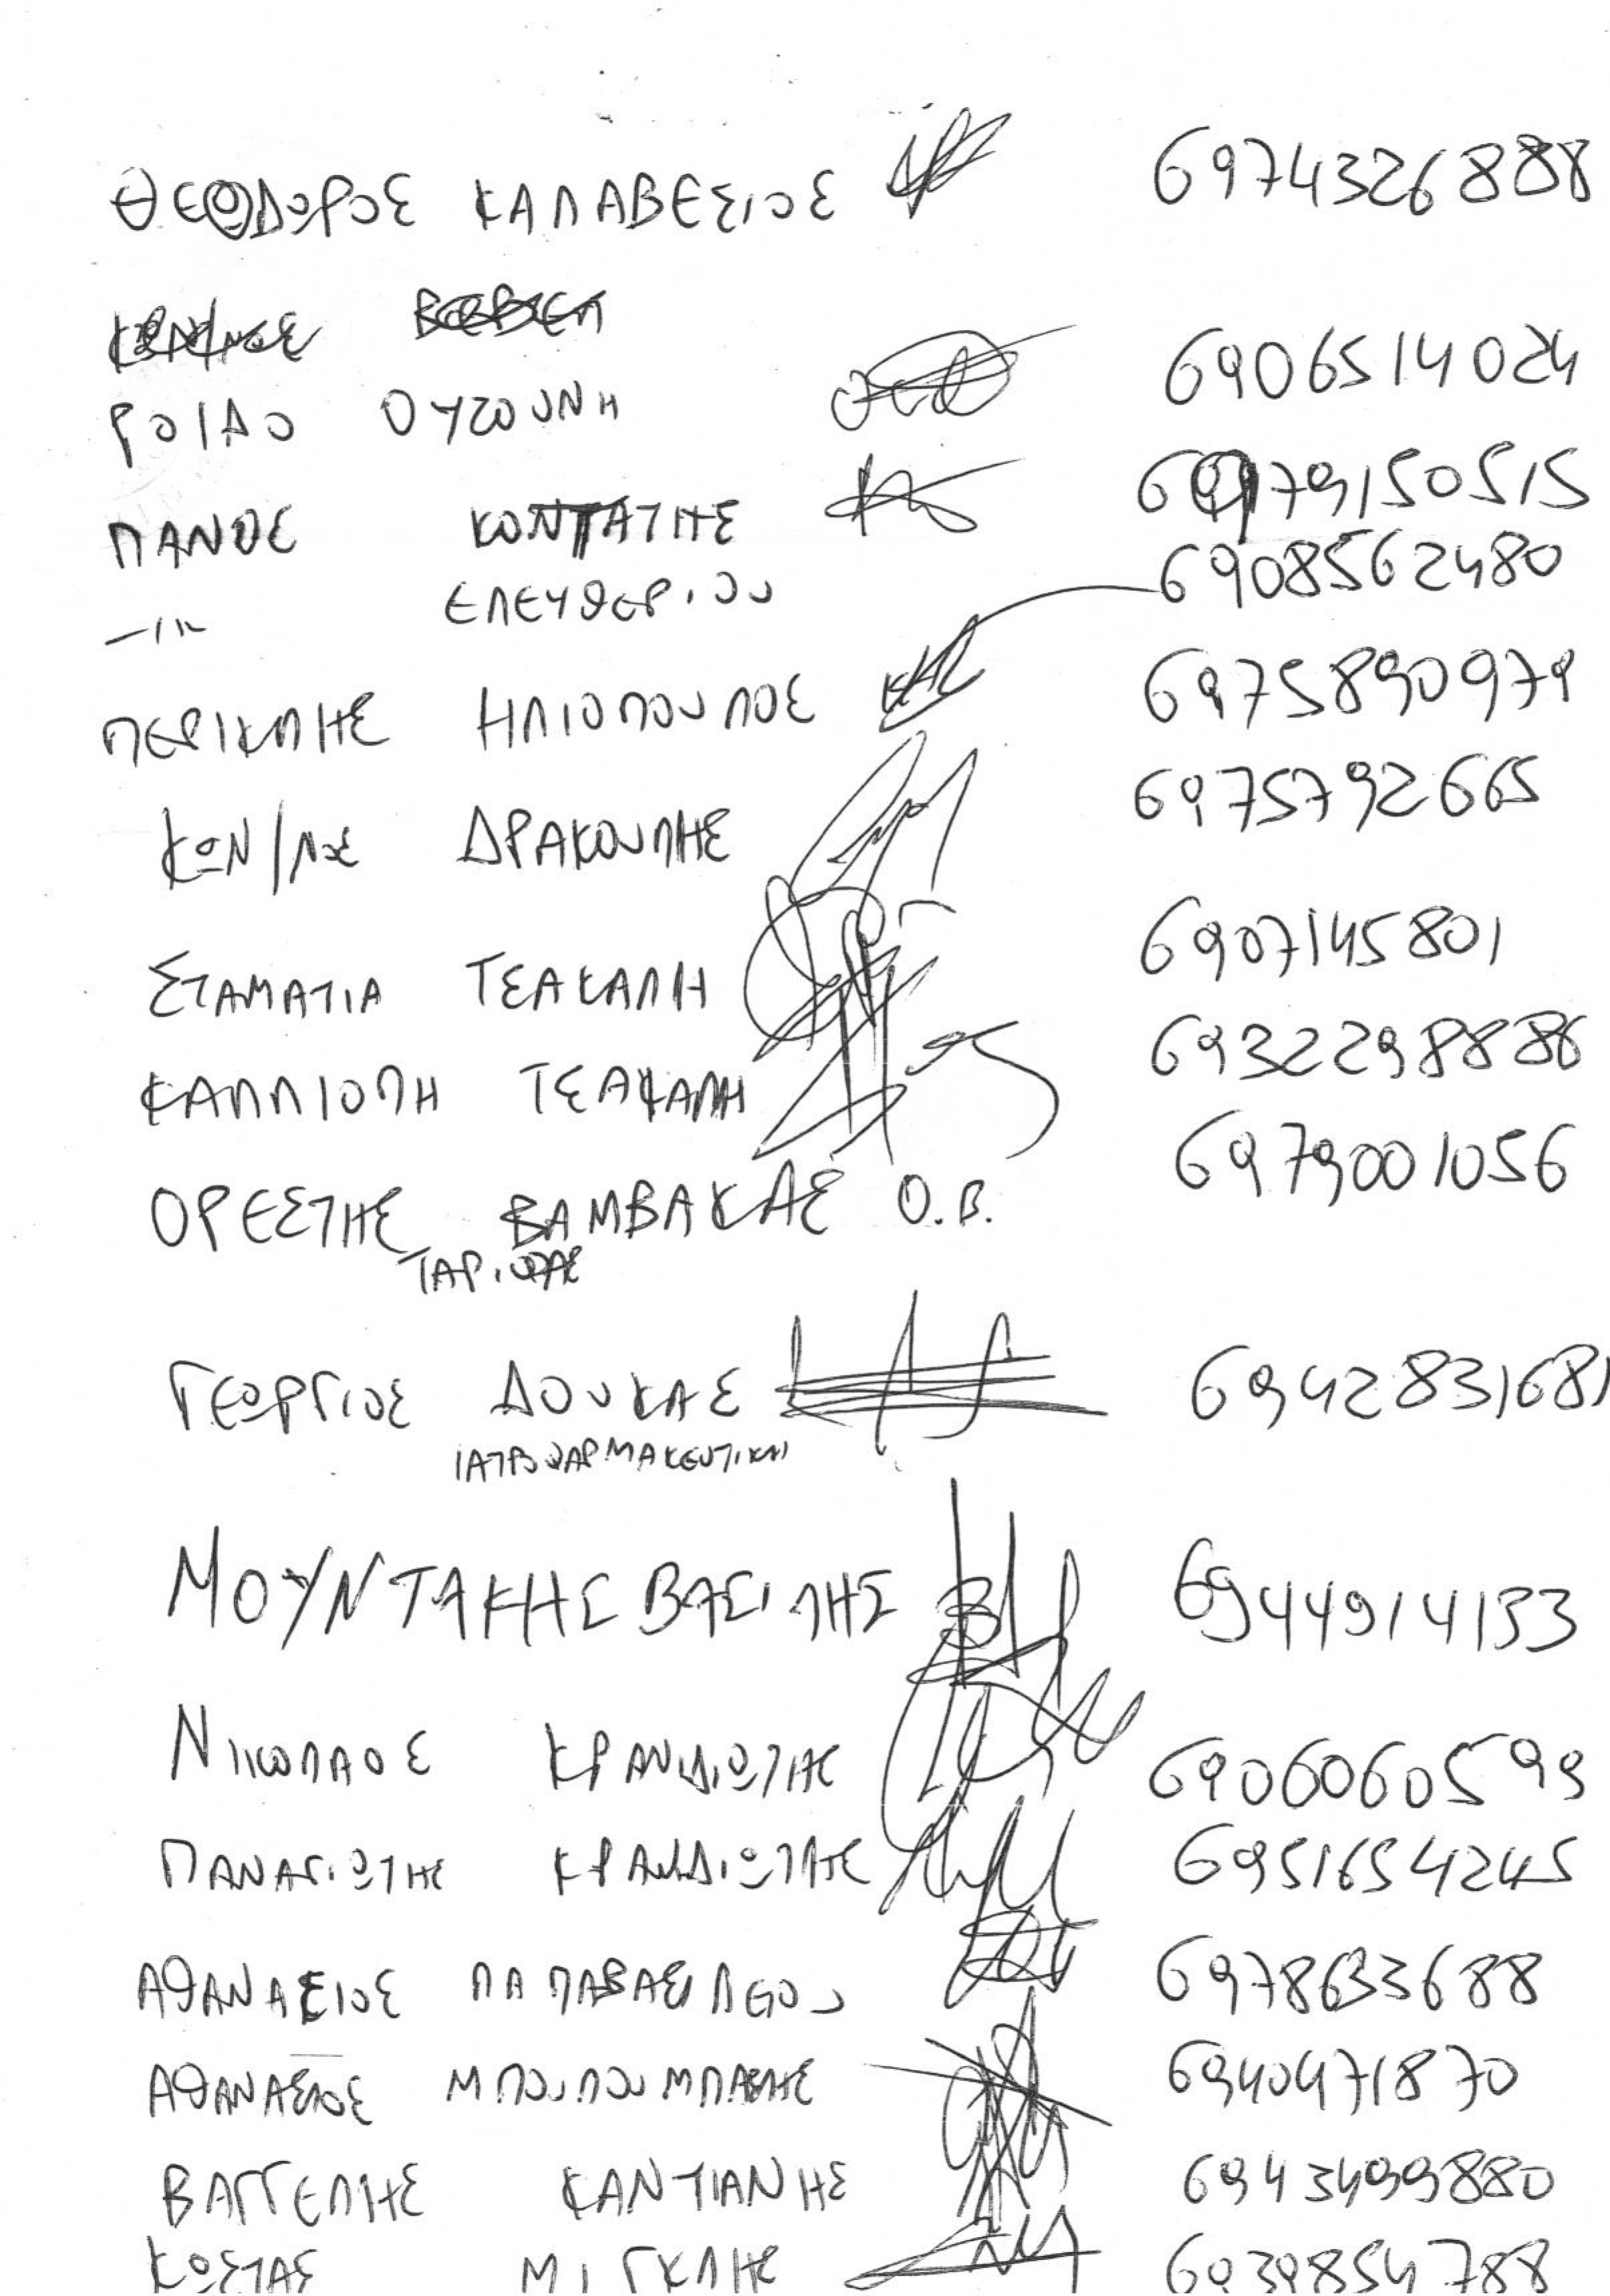 ΘΕΟΔΩΡΟΣ ΚΑΛΑΒΕΣΙΟΣ 6974326888
ΡΟΙΔΩ ΟΥΖΟΥΝΗ 6906514024
ΠΑΝΟΣ 6979150515
ΕΛΕΥΘΕΡΙΟΥ 6908562480
ΠΕΡΙΚΛΗΣ ΗΛΙΟΠΟΥΛΟΣ 6975890979
ΚΩΝ/ΝΟΣ ΔΡΑΚΟΥΛΗΣ 6975792665
ΣΤΑΜΑΤΙΑ ΤΣΑΚΑΛΗ 6907145801
ΚΑΛΛΙΟΠΗ ΤΣΑΚΑΛΗ 6932298886
ΟΡΕΣΤΗΣ ΒΑΜΒΑΚΑΣ Ο.Β. 6979001056
ΓΕΩΡΓΙΟΣ ΔΟΥΚΑΣ 6942831681
ΙΑΤΡΟΦΑΡΜΑΚΕΥΤΙΚΗ
ΜΟΥΝΤΑΚΗΣ ΒΑΣΙΛΗΣ 6944914133
ΝΙΚΟΛΑΟΣ ΚΡΑΝΙΔΙΩΤΗΣ 6906060599
ΠΑΝΑΓΙΩΤΗΣ ΚΡΑΝΙΔΙΩΤΗΣ 6951654245
ΑΘΑΝΑΣΙΟΣ ΠΑΠΑΒΑΣΙΛΕΟΥ 6978633688
ΑΘΑΝΑΣΙΟΣ ΜΠΟΥΛΟΥΜΠΑΣΗΣ 6940471870
ΒΑΓΓΕΛΗΣ ΚΑΝΤΙΑΝΗΣ 6943499880
ΚΩΣΤΑΣ ΜΙΓΚΛΗΣ 6939854788